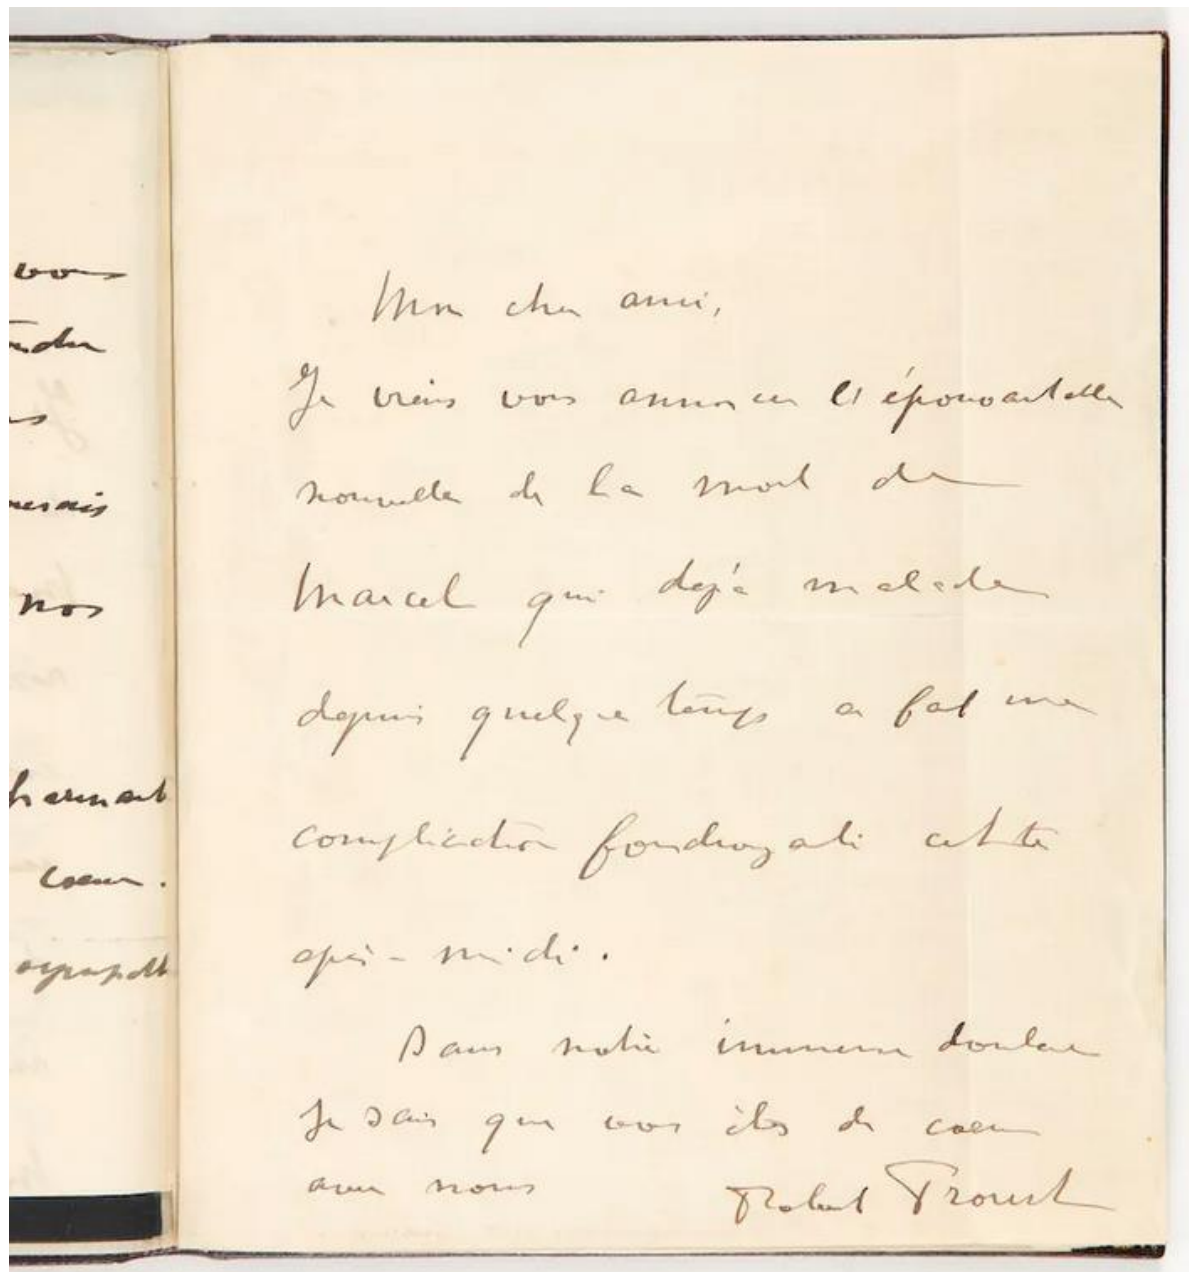 vous
us
nos
charmant
coeur.
Mon cher ami,
Je viens vous annoncer l'épouvantable
nouvelle de la mort de
Marcel qui dejà malade
depuis quelque temps a fait une
complication foudroyante cette
après-midi.
Dans notre immense douleur
Je sais que vous êtes de coeur
avec nous
Robert Proust